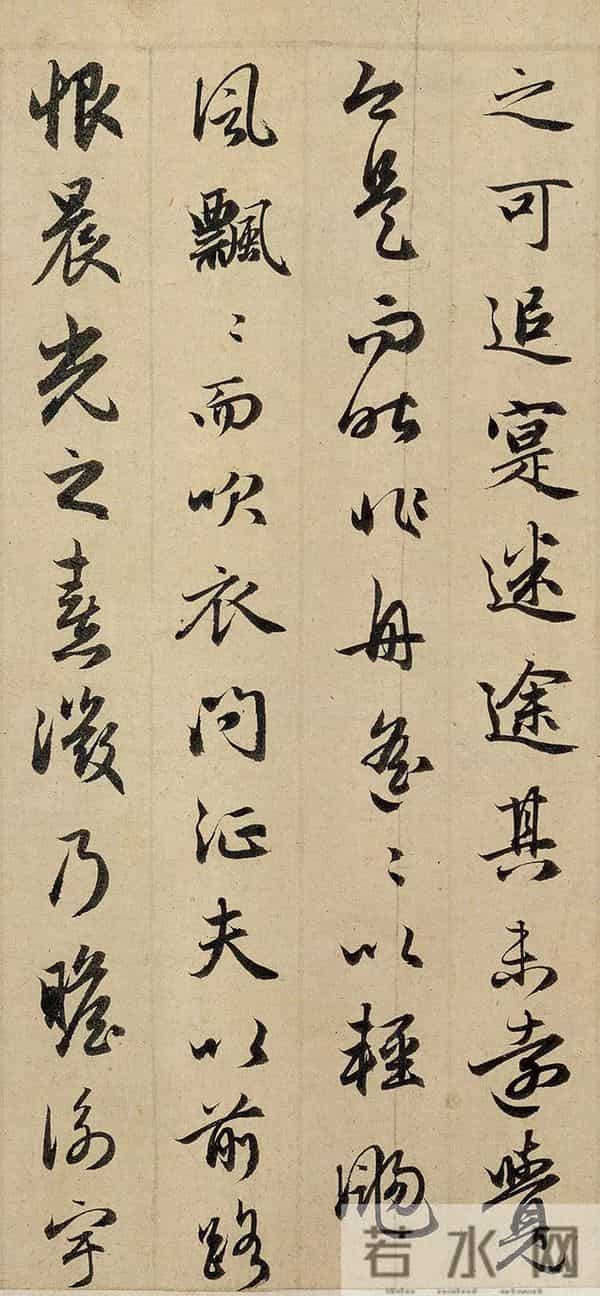 之可追寔迷途其未遠覺
今是而昨非舟遙〻以輕颺
風飄〻而吹衣問征夫以前路
恨晨光之熹微乃瞻衡宇
若水网